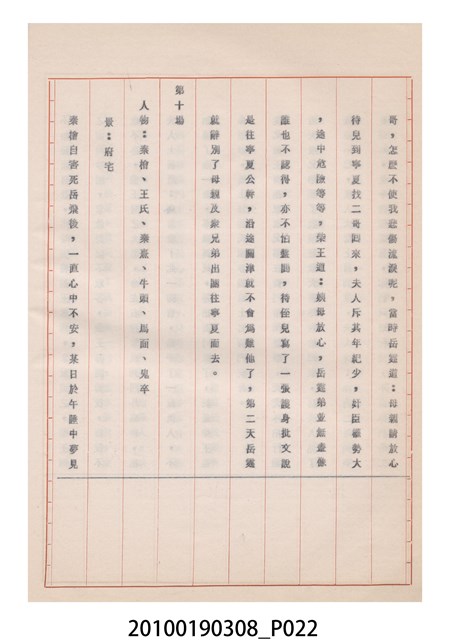 哥，怎麼不使我悲傷流淚呢，當時岳霆道：母親請放心
待兒到寧夏找二哥回來，夫人斥其年紀少，奸臣權勢大
，途中危險等等，柴王道：嬸母放心，岳霆弟並無查你
誰也不認得，亦不怕盤問，待侄兒寫了一張護身批文說
是往寧夏公幹，沿途關津就不會為難他了，第二天岳霆
就辭別了母親及眾兄弟出關往寧夏而去。
第十場
人物：秦檜、王氏、秦熹、牛頭、馬面、鬼卒
景：府宅
秦檜自害死岳飛後，一直心中不安，某日於午睡中夢見
20100190308_P022